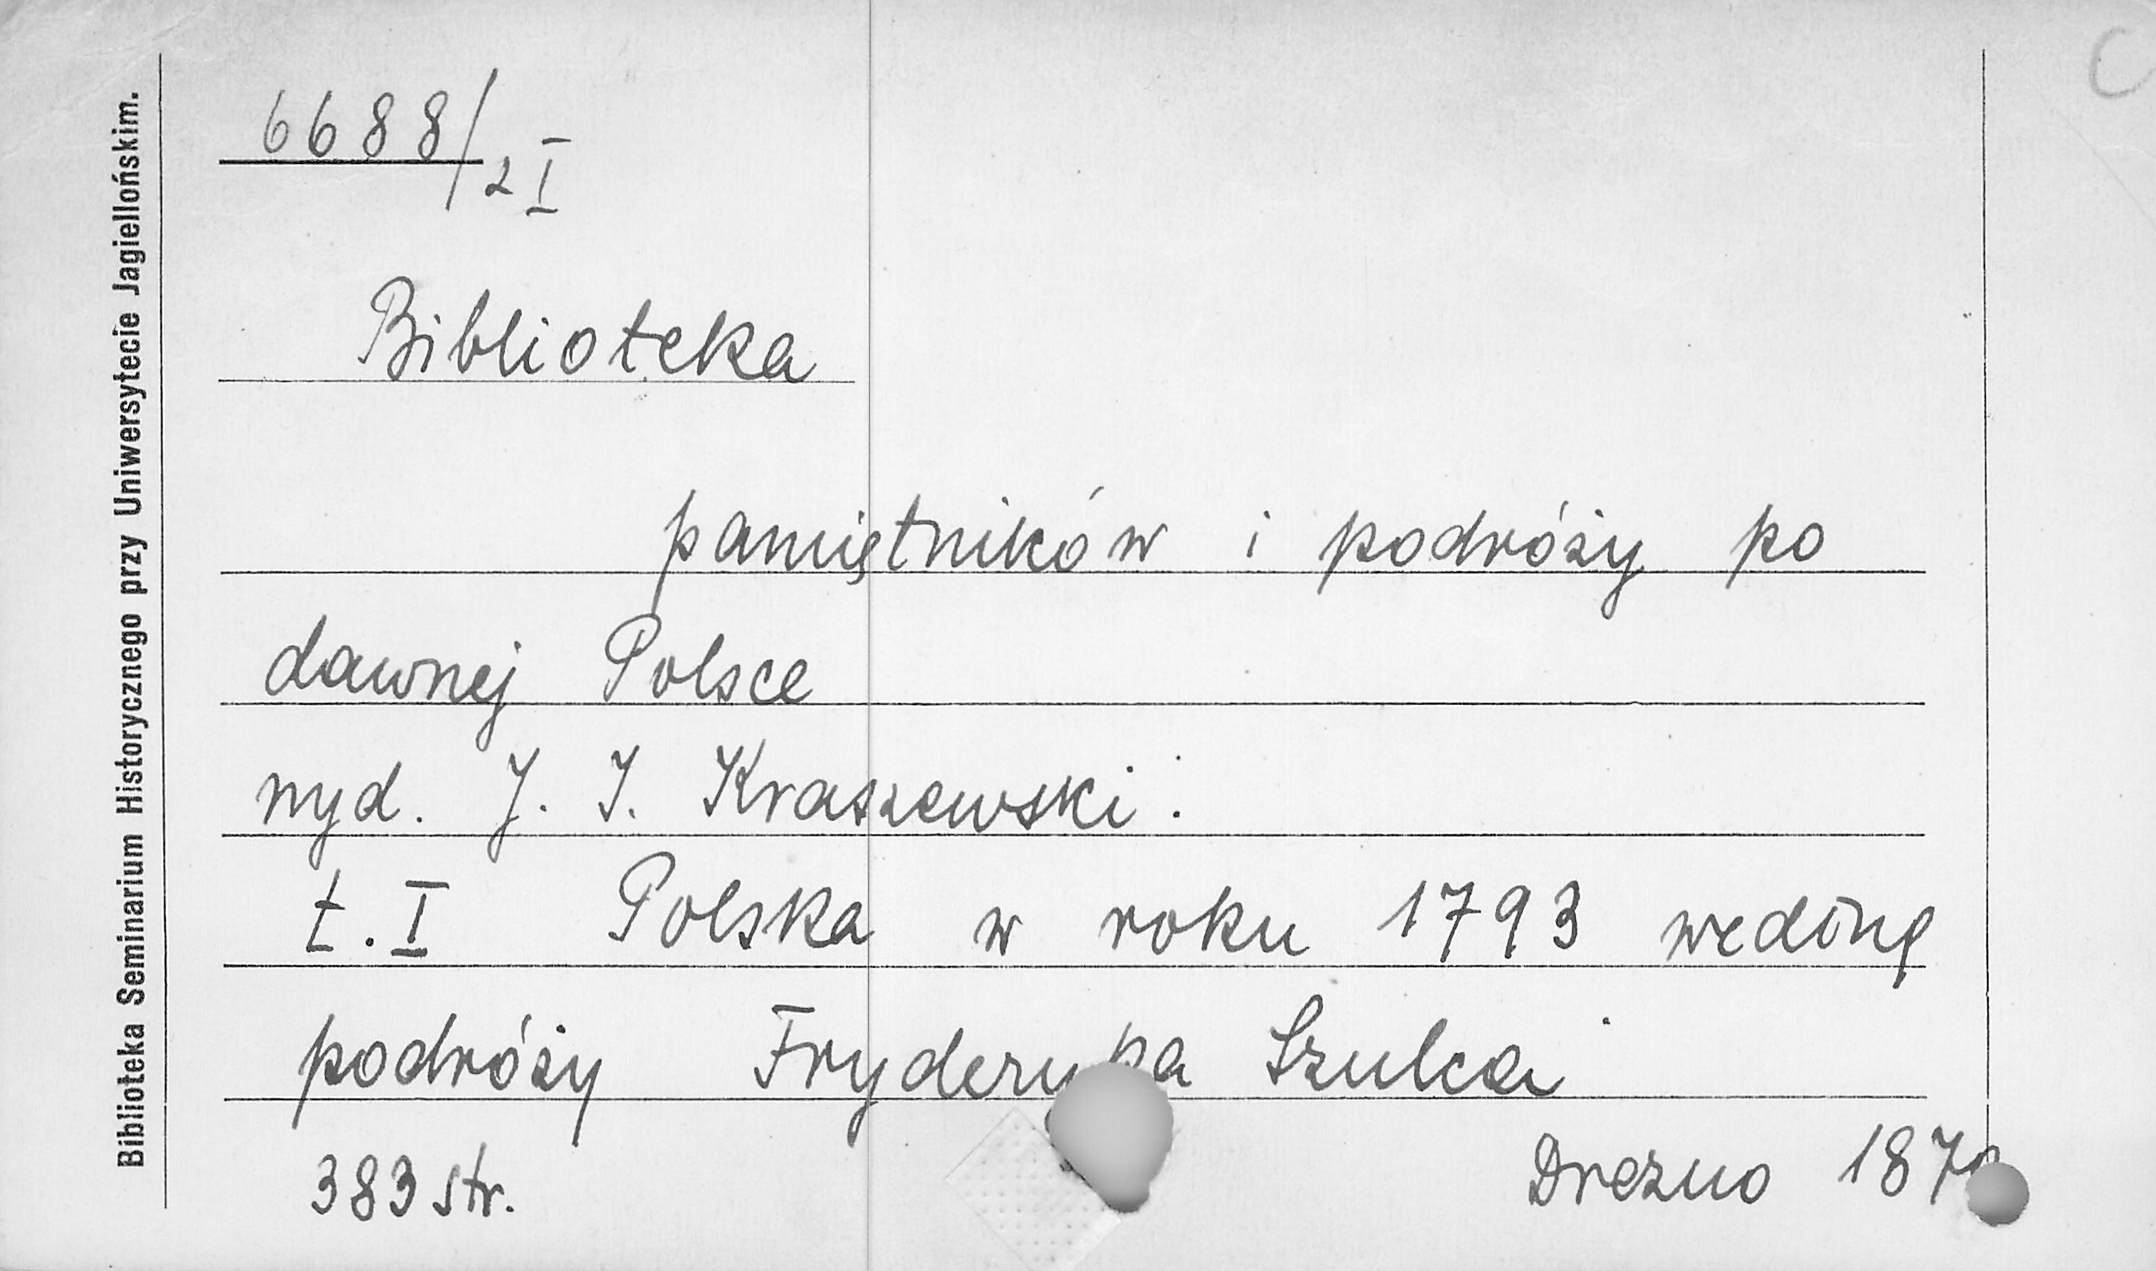 C
6688/2 I
Biblioteka
pamiętników i podróży po
dawnej Polsce
wyd. J. I. Kraszewski:
t. I Polska w roku 1793 według
podróży Fryderyka Szulca
383 str.
Drezno
Biblioteka Seminarium Historycznego przy Uniwersytecie Jagiellońskim.